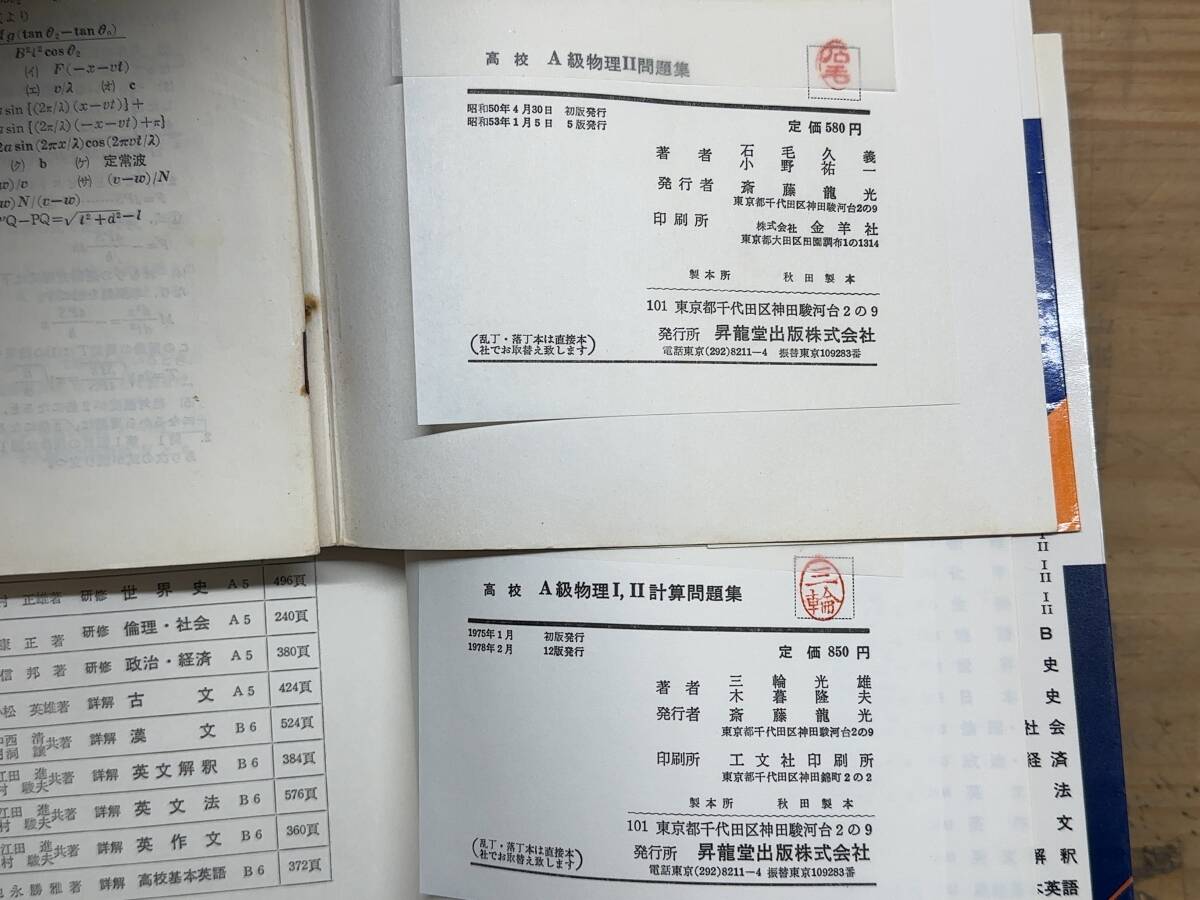 より
g(tan θ₂−tan θ₀)
B²l²cos θ₂
(イ) F(−x−vt)
(エ) v/λ (オ) c
sin[(2π/λ)(x−vt)]+
sin[(2π/λ)(−x−vt)+π]
2a sin(2πx/λ)cos(2πvt/λ)
(ク) b (ケ) 定常波
w)/v (サ) (v−w)/N
w)N/(v−w)
Q−PQ=√l²+d²−l
高校 A級物理II問題集
石毛
昭和50年4月30日 初版発行
昭和53年1月5日 5版発行
定価580円
著者 石毛久義
小野祐一
発行者 斎藤龍光
東京都千代田区神田駿河台2の9
印刷所 株式会社 金羊社
東京都大田区田園調布1の1314
製本所 秋田製本
101 東京都千代田区神田駿河台2の9
発行所 昇龍堂出版株式会社
電話東京(292)8211−4 振替東京109283番
(乱丁・落丁本は直接本
社でお取替え致します)
村 正雄著 研修 世界史 A5 496頁
康正著 研修 倫理・社会 A5 240頁
信邦著 研修 政治・経済 A5 380頁
小松 英雄著 詳解 古文 A5 424頁
中西 清
共著 詳解 漢文 B6 524頁
江田 進
村 駿夫 共著 詳解 英文解釈 B6 384頁
江田 進
村 駿夫 共著 詳解 英文法 B6 576頁
江田 進
村 駿夫 共著 詳解 英作文 B6 360頁
永勝雅著 詳解 高校基本英語 B6 372頁
高校 A級物理I,II計算問題集
三輪
1975年1月 初版発行
1978年2月 12版発行
定価850円
著者 三輪光雄
木暮隆夫
発行者 斎藤龍光
東京都千代田区神田駿河台2の9
印刷所 工文社印刷所
東京都千代田区神田錦町2の2
製本所 秋田製本
101 東京都千代田区神田駿河台2の9
発行所 昇龍堂出版株式会社
電話東京(292)8211−4 振替東京109283番
(乱丁・落丁本は直接本
社でお取替え致します)
II
I
II
I
II
B
史
史
社会
経済
法
文
解釈
本英語